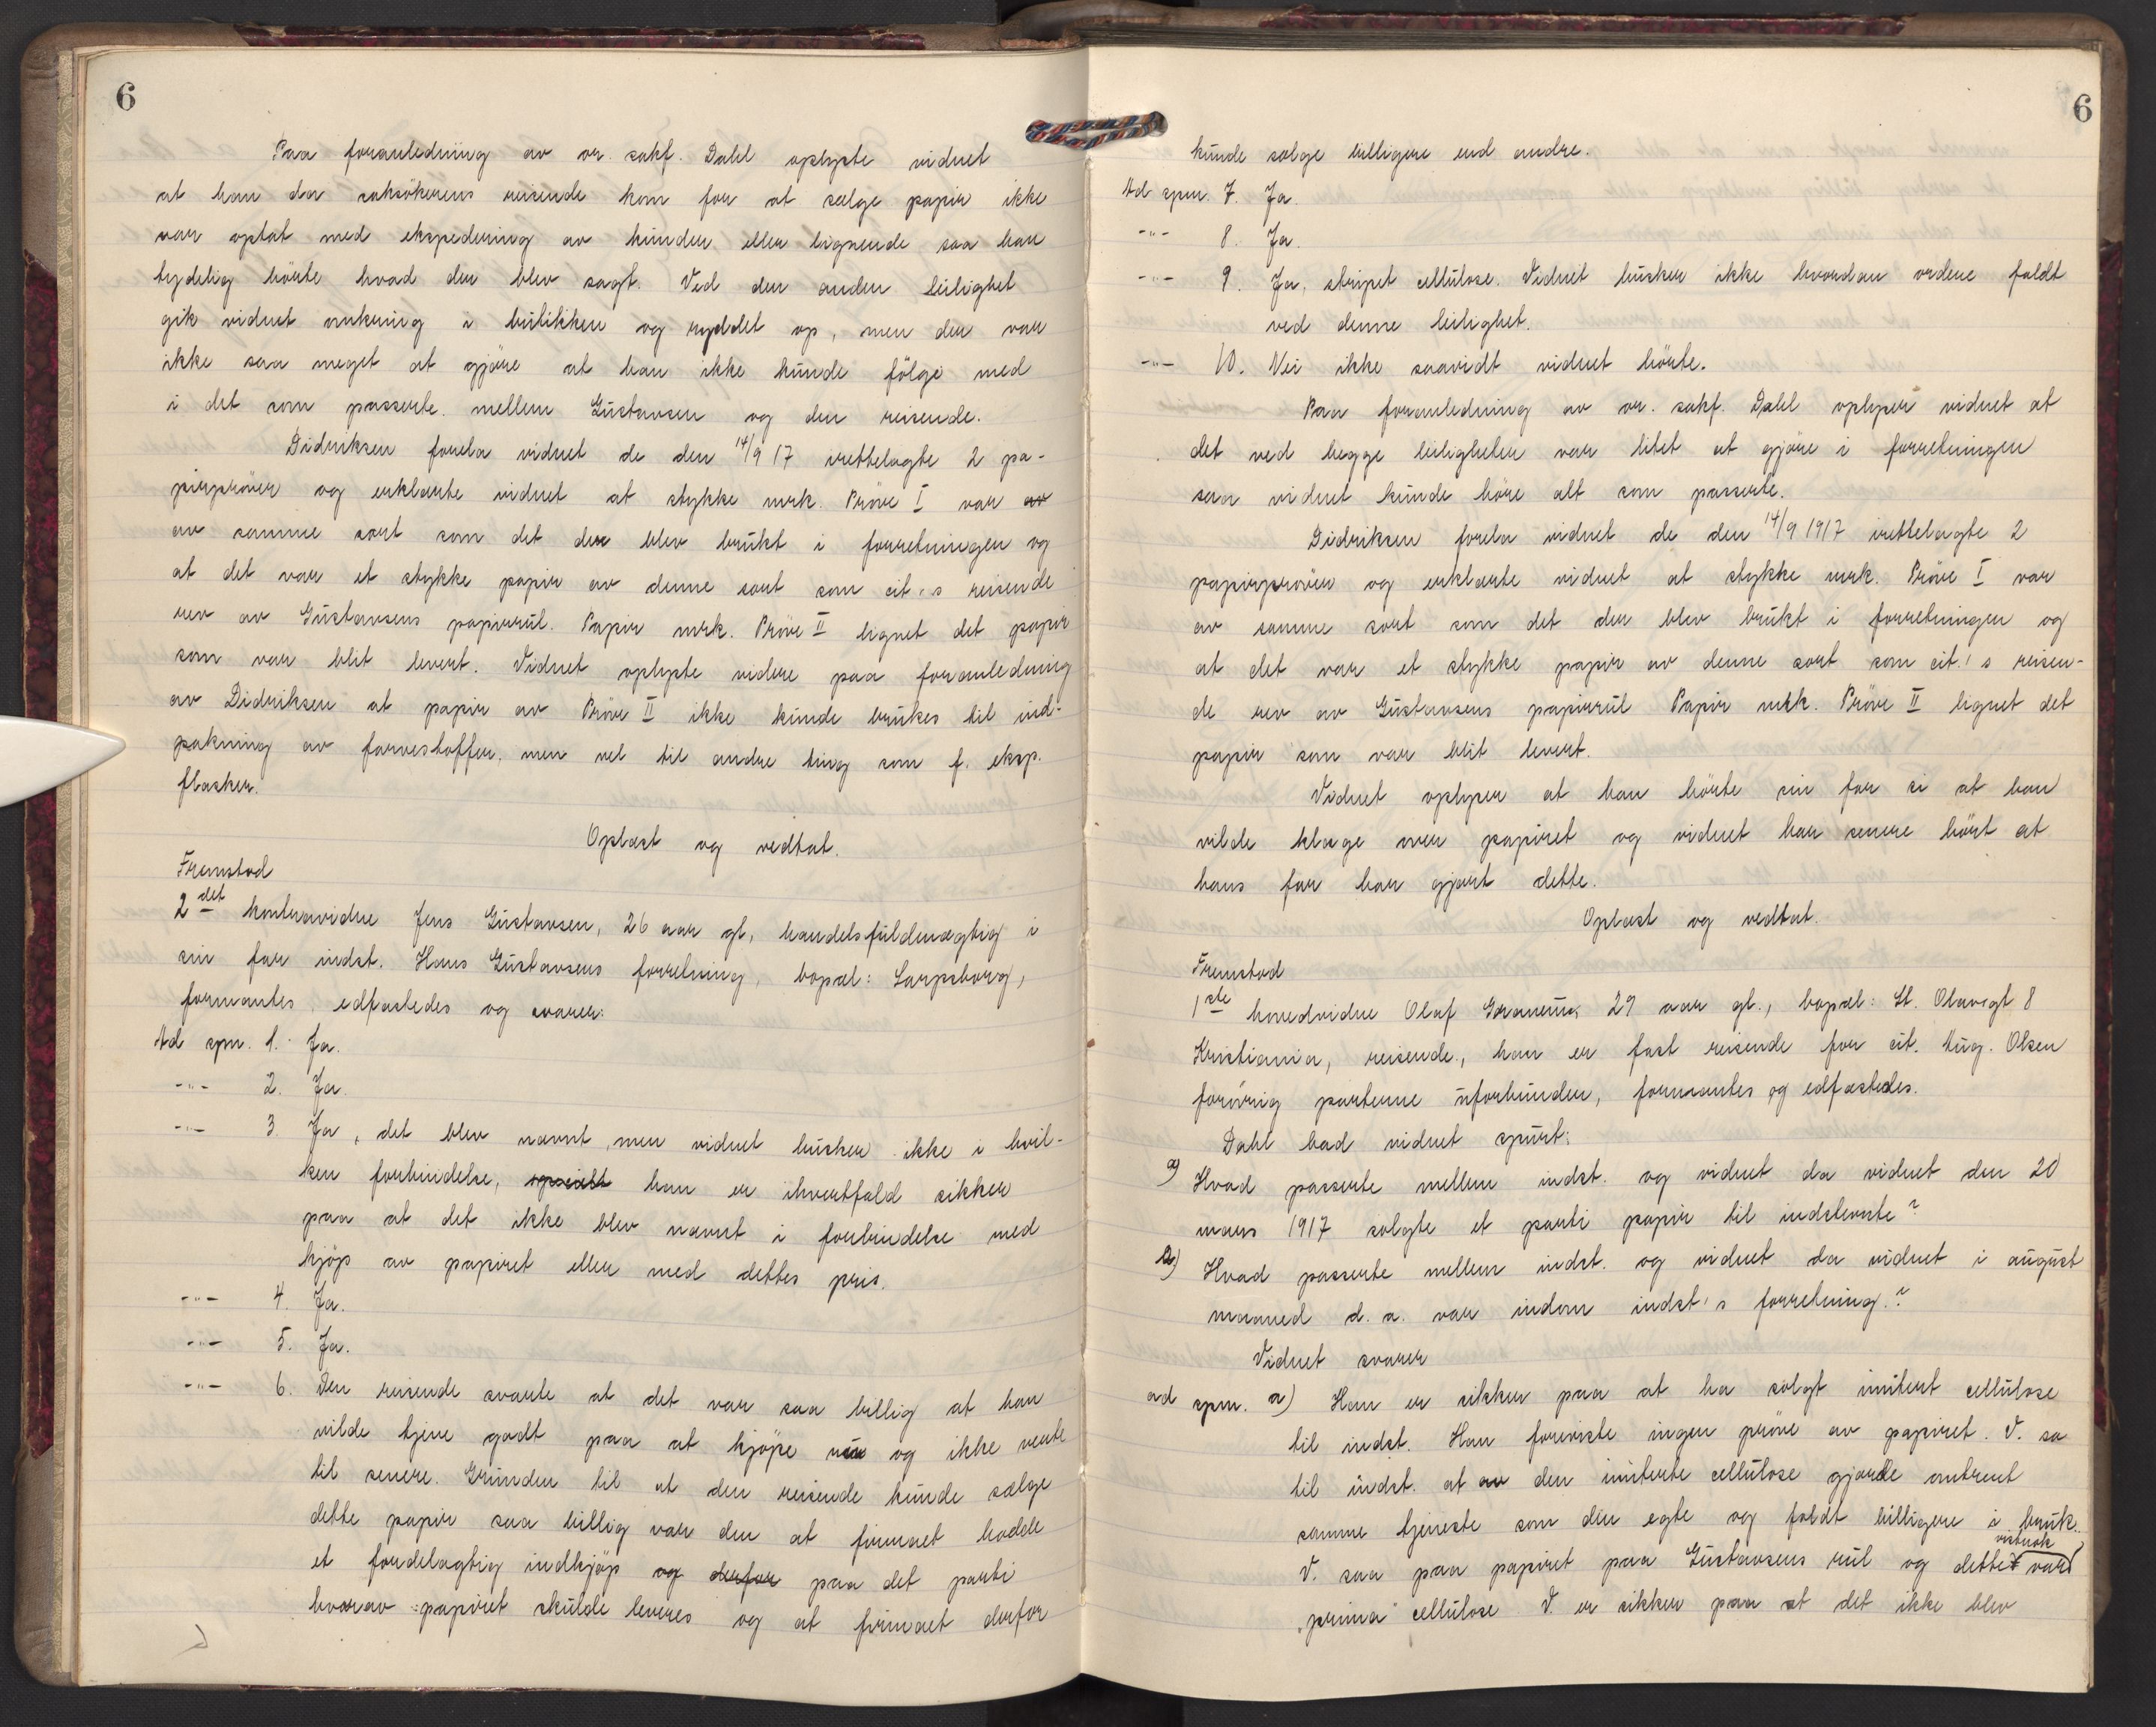 6
Paa foranledning av or. sakf. Dahl oplyste vidnet
at han da saksökerens reisende kom for at sælge papir ikke
var optat med ekspedering av kunder eller lignende saa han
tydelig hörte hvad der blev sagt. Ved den anden leilighet
gik vidnet omkring i butikken og ryddet op, men der var
ikke saa meget at gjöre at han ikke kunde fölge med
i det som passerte mellem Gustavsen og den reisende.
Didriksen forela vidnet de den 14/9 17 rettelagte 2 pa-
pirpröver og erklærte vidnet at stykke mrk. Pröve I var av
av samme sort som det der blev brukt i forretningen og
at det var et stykke papir av denne sort som cit.s reisende
rev av Gustavsens papirrul. Papir mrk. Pröve II lignet det papir
som var blit levert. Vidnet oplyste videre paa foranledning
av Didriksen at papir av Pröve II ikke kunde brukes til ind-
pakning av farvestoffer, men vel til andre ting som f. eksp.
flasker.
Oplæst og vedtat.
Fremstod
2det kontravidne Jens Gustavsen, 26 aar gl, handelsfuldmægtig i
sin far indst. Hans Gustavsens forretning, bopæl: Sarpsborg,
formantes, edfæstedes og svarer:
Ad spm. 1. Ja.
-"- 2. Ja.
-"- 3. Ja, det blev nævnt, men vidnet husker ikke i hvil-
ken forbindelse, specielt han er ihvertfald sikker
paa at det ikke blev nævnt i forbindelse med
kjöp av papiret eller med dettes pris.
-"- 4. Ja.
-"- 5. Ja.
-"- 6. Den reisende svarte at det var saa billig at han
vilde tjene godt paa at kjöpe nu og ikke vente
til senere. Grunden til at den reisende kunde sælge
dette papir saa billig var den at firmaet hadde
et fordelagtig indkjöp og derfor paa det parti
hvorav papiret skulde leveres og at firmaet derfor
6
kunde sælge billigere end andre.
Ad spm. 7. Ja.
-"- 8. Ja.
-"- 9. Ja, stripet cellulose. Vidnet husker ikke hvordan ordene faldt
ved denne leilighet.
-"- 10. Nei ikke saavidt vidnet hörte.
Paa foranledning av or. sakf. Dahl oplyser vidnet at
det ved begge leiligheter var litet at gjöre i forretningen
saa vidnet kunde höre alt som passerte.
Didriksen forela vidnet de den 14/9 1917 rettelagte 2
papirpröver og erklærte vidnet at stykke mrk. Pröve I var
av samme sort som det der blev brukt i forretningen og
at det var et stykke papir av denne sort som cit.'s reisen-
de rev av Gustavsens papirrul Papir mrk. Pröve II lignet det
papir som var blit levert.
Vidnet oplyser at han hörte sin far si at han
vilde klage over papiret og vidnet har senere hört at
hans far har gjort dette.
Oplæst og vedtat.
Fremstod
1ste hovedvidne Olaf 29 aar gl., bopæl: St. Olavsgt 8
Kristiania, reisende, han er fast reisende for cit. Aug. Olsen
forövrig parterne uforbunden, formantes og edfæstedes.
Dahl bad vidnet spurt:
a) Hvad passerte mellem indst. og vidnet da vidnet den 20
mars 1917 solgte et parti papir til indstevnte?
b) Hvad passerte mellem indst. og vidnet da vidnet i august
maaned d. a. var indom indst's forretning?
Vidnet svarer
ad spm. a) Han er sikker paa at ha solgt imitert cellulose
til indst. Han foreviste ingen pröve av papiret. V. sa
til indst. at av den imiterte cellulose gjorde omtrent
samme tjeneste som den egte og faldt billigere i bruk.
V. saa paa papiret paa Gustavsens rul og dette var vistnok
"prima" cellulose V. er sikker paa at det ikke blev